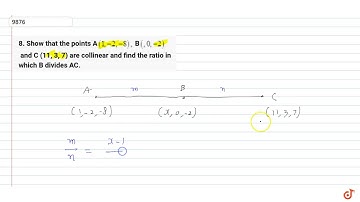 9876
8. Show that the points A(1,−2,−8), B(,0,−2)
and C (11, 3, 7) are collinear and find the ratio in
which B divides AC.
A m B n C
(1,-2,-8) (x,0,-2) (11,3,7)
m/n = x-1